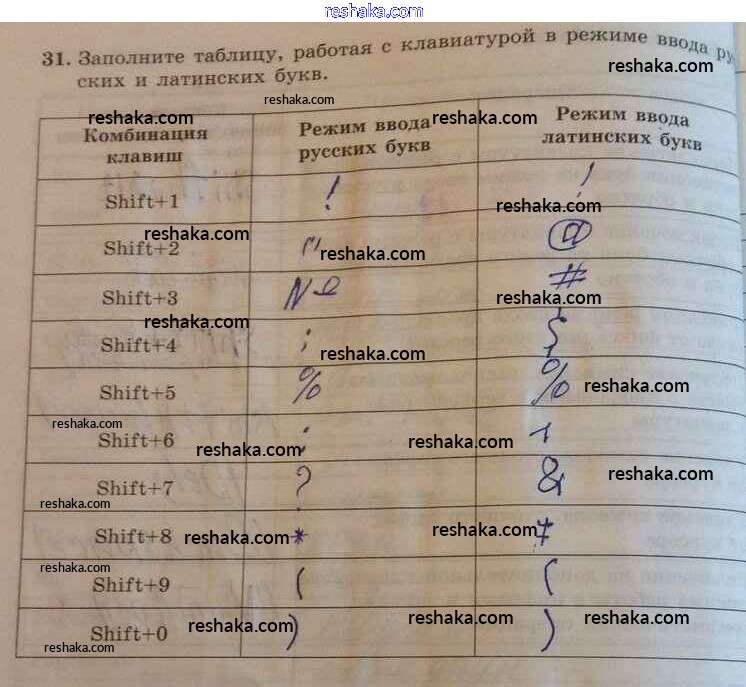 reshaka.com
31. Заполните таблицу, работая с клавиатурой в режиме ввода ру
ских и латинских букв.
reshaka.com
reshaka.com
reshaka.com reshaka.com reshaka.com
Комбинация клавиш Режим ввода русских букв Режим ввода латинских букв
Shift+1 ! !
reshaka.com
reshaka.com
Shift+2 " @
Shift+3 № #
reshaka.com
reshaka.com
Shift+4 ;
Shift+5 % %
reshaka.com
reshaka.com
Shift+6 :
reshaka.com reshaka.com
Shift+7 ? &
reshaka.com
reshaka.com
Shift+8 * *
reshaka.com reshaka.com
reshaka.com
Shift+9 ( (
Shift+0 ) )
reshaka.com reshaka.com
reshaka.com
reshaka.com